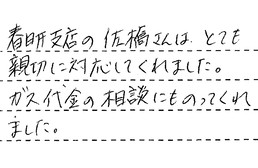 春町支店の佐橋さんは、とても
親切に対応してくれました。
ガス代金の相談にものってくれ
ました。